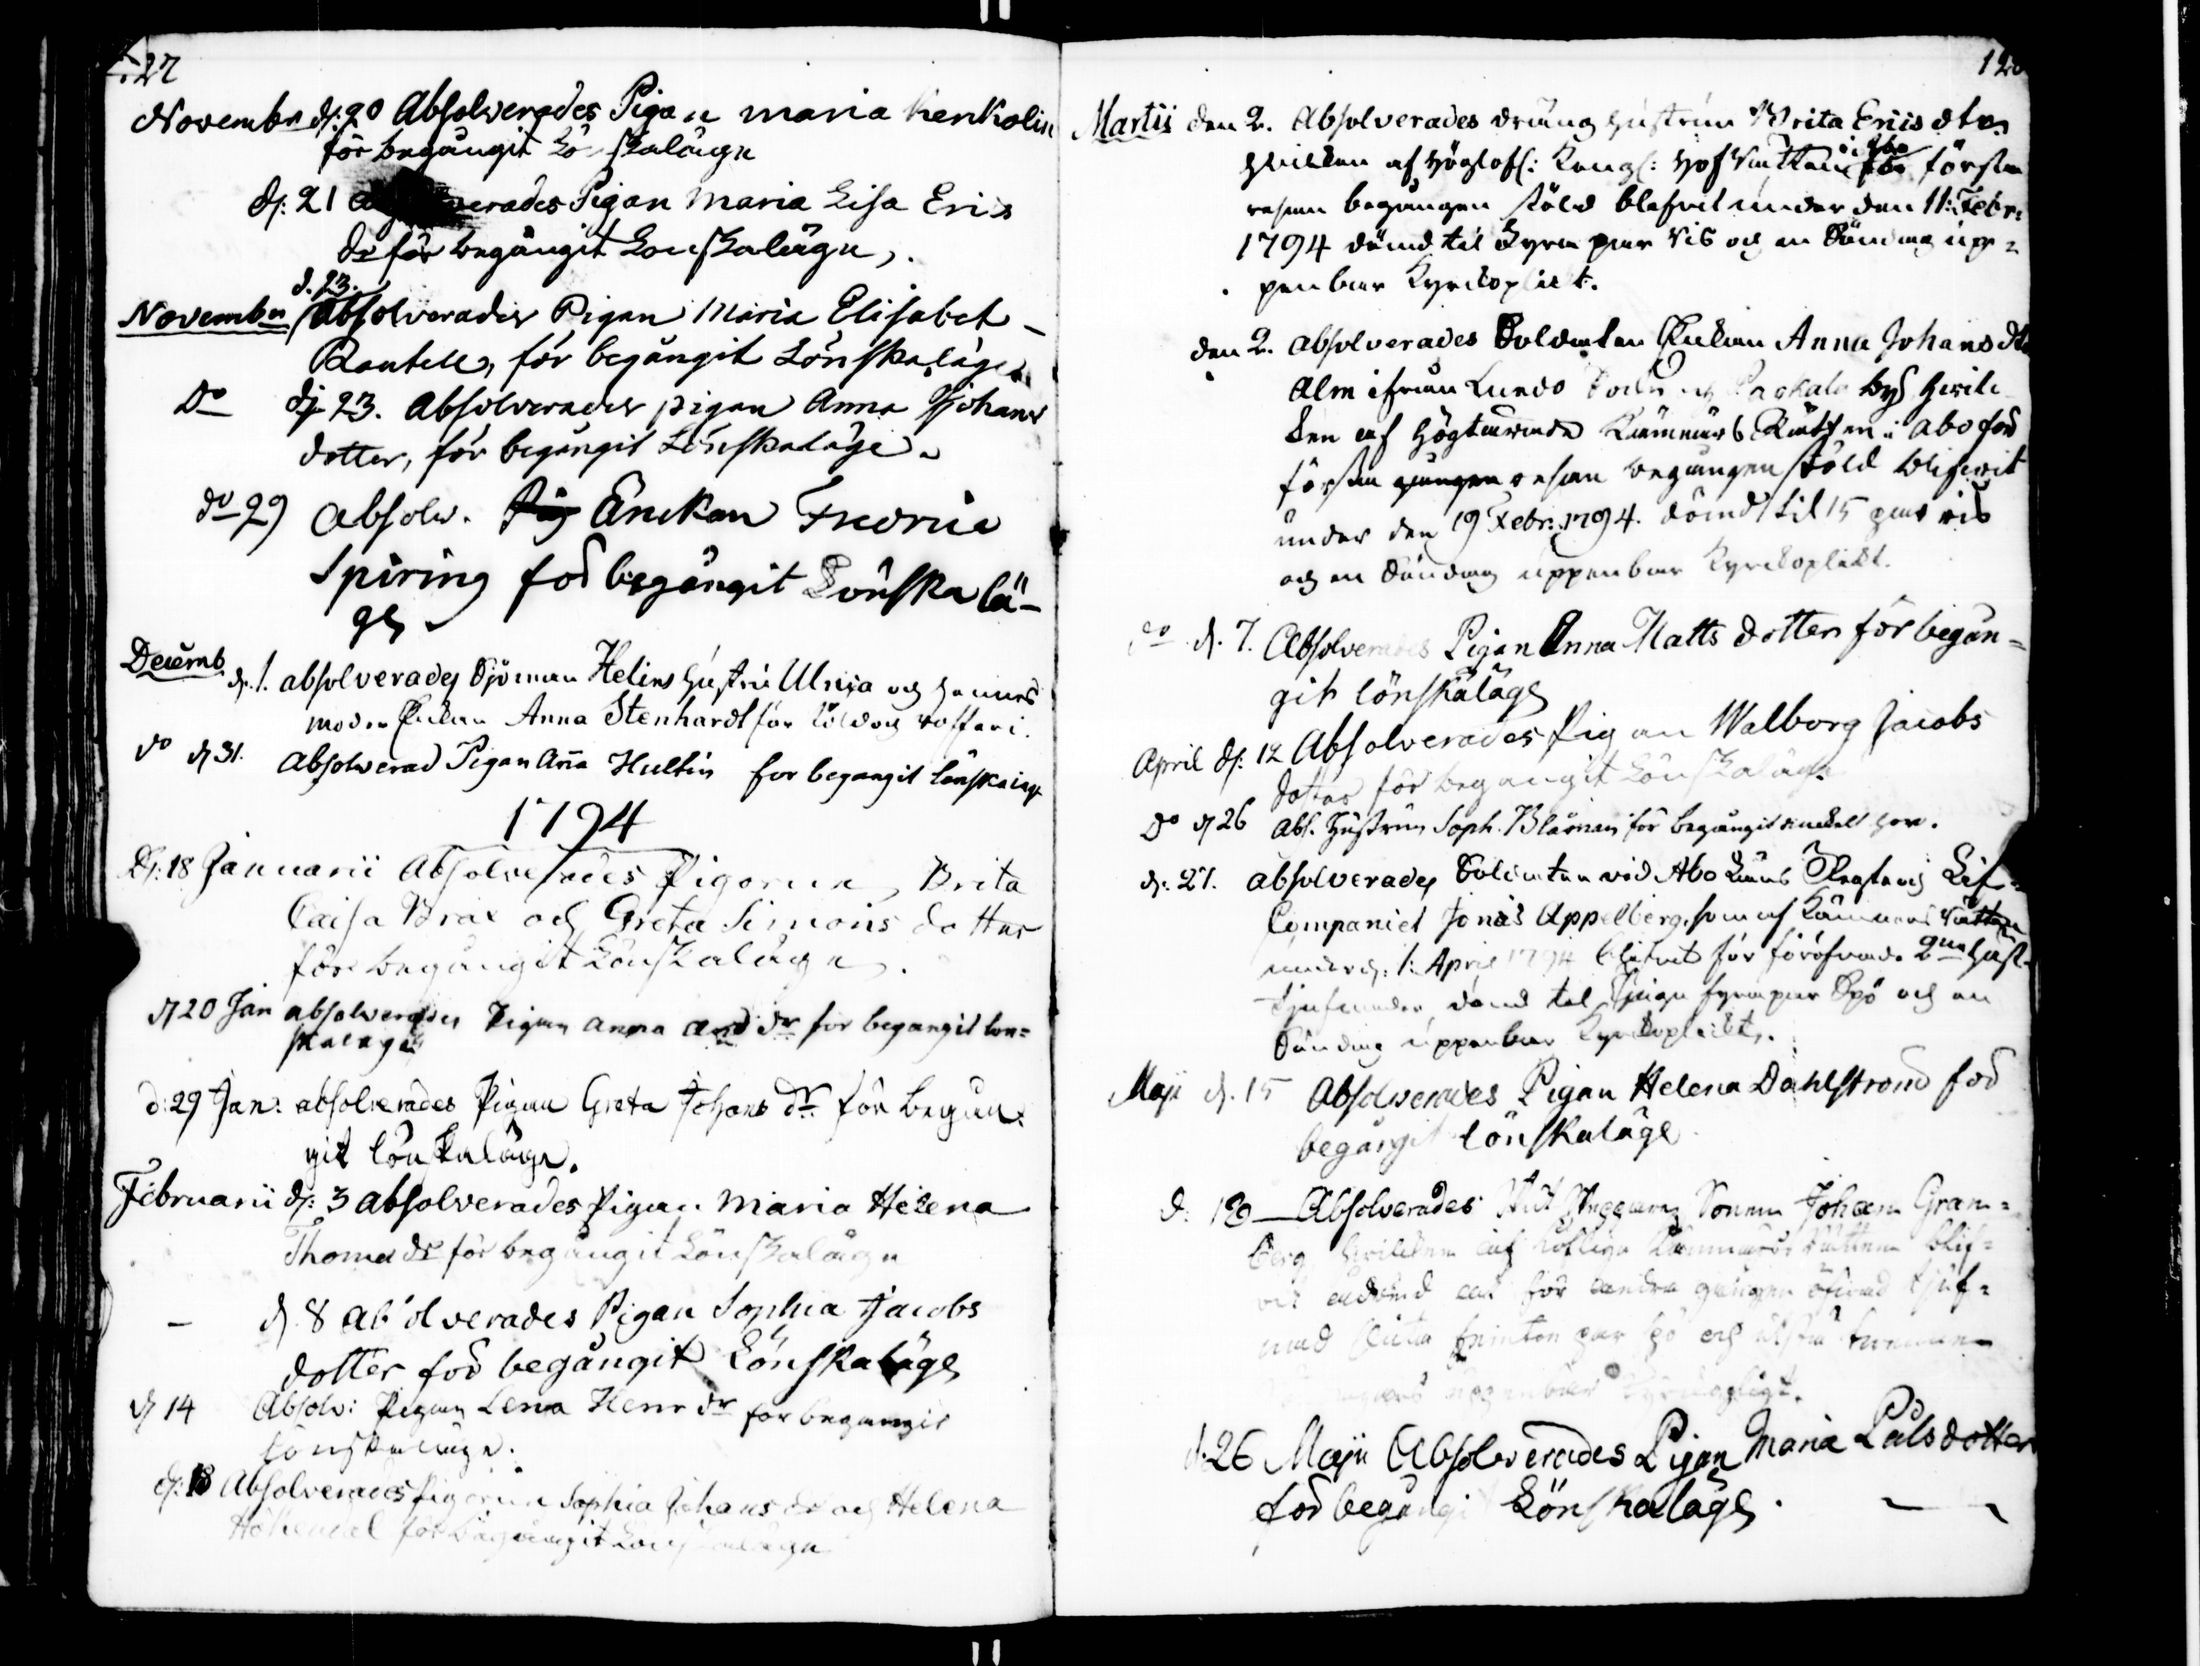 127
Novembr d: 20 Absolverades Pigan maria Kenkolin
för begångit Lönskaläge
d: 21 Absolverades Pigan Maria Lisa Erics
dr för begångit Lönskaläge,.
d. 23.
November Absolverades Pigan Maria Elisabet
Rantell, för begångit Lönskaläge.
Do d. 23. Absolverades pigan Anna Johans
dotter, för begångit Lönskaläge.
do 29 absolv. Enckan
Spiring för begångit Lönskalä-
ge
Decemb d. 1. absolverades Sjöman Helins hustru Ulrica och hennes
moder Enkan Anna Stenhardt för
do d 31. Absolverad Pigan Aña Hultin for begangit lönskaläge
1794
D: 18 Januarii Absolverades Pigorna, Brita
Caisa Brax och Greta Simons dotter
för begångit Lönskaläge.
d 20 Jan absolverades Pigan Anna And dr för begangit lön=
skaläge
d: 29 Jan: absolverades Pigan Greta Johans dr för begån=
git lönskaläge.
Februarii d: 3 absolverades Pigan Maria Helena
Thomae dr för begångit Lönskaläge
- d. 8 absolverades Pigan Sophia Jacobs
dotter för begångit Lönskaläge
d 14 Absolv: Pigan Lena Henr dr för begangit
Lönskaläge.
d: 18 Absolverades Pigorna Sophia Johans dr och Helena
för begångit Lönskaläge
Martii den 2. Absolverades dräng hustrun Brita Erics dtr
hvilken af Höglofl: Kongl: Hof Rätten i Åbo för första
resan begången stöld blefvit under den 11: Febr:
1794 dömd til fyra par Ris och en Söndag up=
penbar Kyrckoplickt.
den 2. absolverades Soldaten Enkan Anna Johans dtr
Alm ifrån Lundo Sockn och by hvil
ken af Högtärade Kämnärs Rätten i Åbo för
första gången resan begången stöld blifwit
under den 19 Febr: 1794. dömd til 15 par ris
och en Söndag uppenbar Kyrckoplickt.
do d. 7. Absolverades Pigan Anna Matts dotter för begån=
git lönskaläge
April d: 12 Absolverades Pigan Walborg Jacobs
dotter för begangit Lönskaläge
Do d 26 Abs. Hustrun Soph. Blåman för begångit enckelt hor.
d: 27. absolverades Soldaten vid Åbo Läns Regte och Lif=
Compagniet Jonas Appelberg, som af Kämners Rätten
under d: 1: April 1794 blifvit för föröfvad 2ne
dömd til Tjugu fyra par Spö och en
Söndag uppenbar Kyrckoplickt.
Maji d. 15 Absolverades Pigan Helena Dahlström för
begångit lönskaläge
d: Absolverades Sonen Johan Gran=
berg hvilken af Loflige Kämnärs Rätten blif=
vit för andra gången öfvad tjuf=
nad par spö och
uppenbar Kyrckoplickt.
d: 26 Maji Absolverades Pigan Maria Påls dotter
för begångit Lönskaläge.